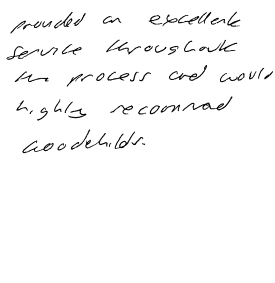 provided an excellent
service throughout
the process and would
highly recommend
woodchilds.